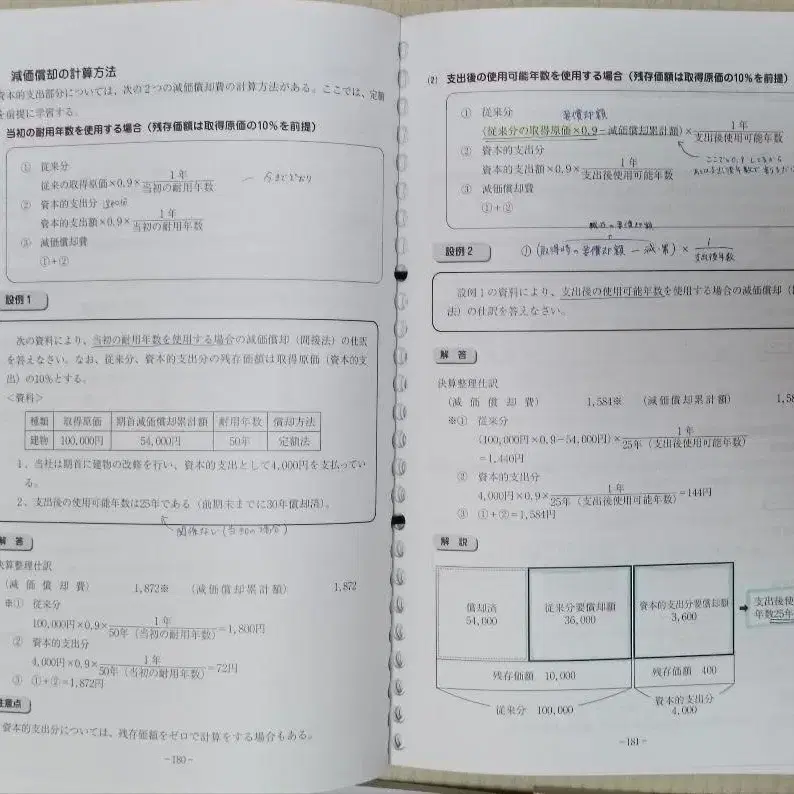 減価償却の計算方法
資本的支出部分については、次の2つの減価償却費の計算方法がある。ここでは、定額
を前提に学習する。
当初の耐用年数を使用する場合（残存価額は取得原価の10％を前提）
① 従来分
従来の取得原価×0.9× 1年/当初の耐用年数 ― 今までどおり
② 資本的支出分
資本的支出額×0.9× 1年/当初の耐用年数
③ 減価償却費
①+②
設例1
次の資料により、当初の耐用年数を使用する場合の減価償却（間接法）の仕訳
を答えなさい。なお、従来分、資本的支出分の残存価額は取得原価（資本的支
出）の10％とする。
＜資料＞
種類 取得原価 期首減価償却累計額 耐用年数 償却方法
建物 100,000円 54,000円 50年 定額法
1、当社は期首に建物の改修を行い、資本的支出として4,000円を支払ってい
る。
2、支出後の使用可能年数は25年である（前期末までに30年償却済）。
関係ない(当初の場合)
解 答
決算整理仕訳
（減 価 償 却 費） 1,872※ （減価償却累計額） 1,872
※① 従来分
100,000円×0.9× 1年/50年（当初の耐用年数） =1,800円
② 資本的支出分
4,000円×0.9× 1年/50年（当初の耐用年数） =72円
③ ①+②=1,872円
注意点
資本的支出分については、残存価額をゼロで計算をする場合もある。
-180-
(2) 支出後の使用可能年数を使用する場合（残存価額は取得原価の10％を前提）
① 従来分 要償却額
（従来分の取得原価×0.9－減価償却累計額）× 1年/支出後使用可能年数
② 資本的支出分
資本的支出額×0.9× 1年/支出後使用可能年数
③ 減価償却費
①+②
設例2
①(取得時の要償却額 － 減・累) × 1/支出後年数
設例1の資料により、支出後の使用可能年数を使用する場合の減価償却（
法）の仕訳を答えなさい。
解 答
決算整理仕訳
（減 価 償 却 費） 1,584※ （減価償却累計額） 1,58
※① 従来分
(100,000円×0.9－54,000円)× 1年/25年（支出後使用可能年数）
=1,440円
② 資本的支出分
4,000円×0.9× 1年/25年（支出後使用可能年数） =144円
③ ①+②=1,584円
解 説
償却済 従来分要償却額 資本的支出分要償却額 支出後使
54,000 36,000 3,600 年数25年
残存価額 10,000 残存価額 400
従来分 100,000 資本的支出分
4,000
-181-